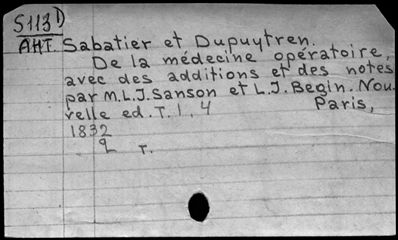 S113 1)
AHT. Sabatier et Dupuytren.
De la médecine opératoire,
avec des additions et des notes
par M.L.J. Sanson et L.J. Begin. Nou-
velle ed. T. 1, 4 Paris,
1832
2 T.